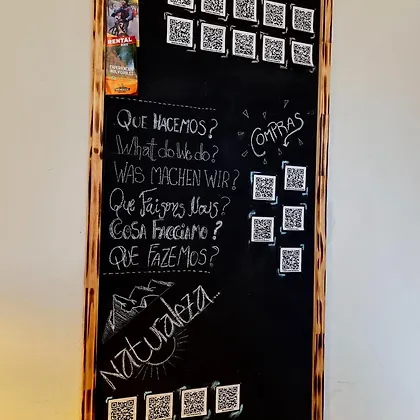 RENTAL
QUE HACEMOS?
What do we do?
WAS MACHEN WIR?
Que Faisons Nous?
COSA FACCIAMO?
QUE FAZEMOS?
COMPRAS
Naturaleza...